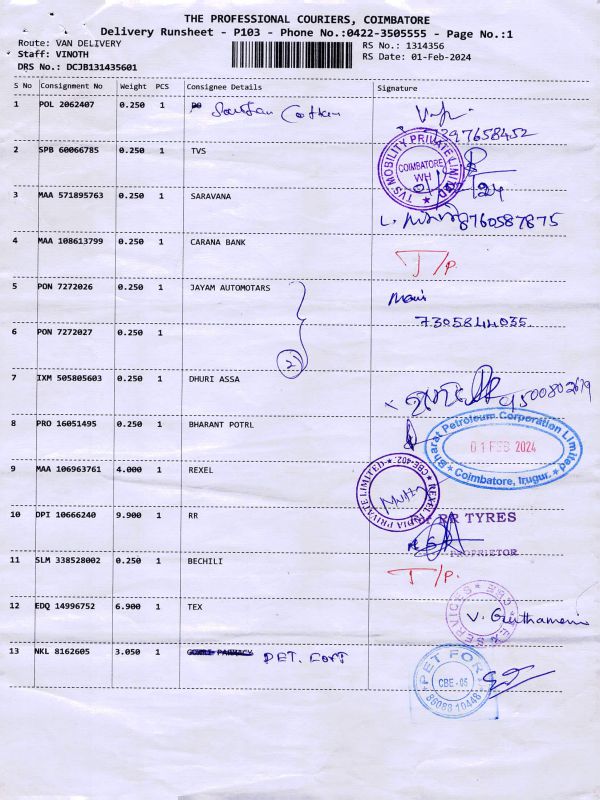 THE PROFESSIONAL COURIERS, COIMBATORE
Delivery Runsheet - P103 - Phone No.:0422-3505555 - Page No.:1
Route: VAN DELIVERY RS No.: 1314356
Staff: VINOTH RS Date: 01-Feb-2024
DRS No.: DCJB131435601
S No Consignment No Weight PCS Consignee Details Signature
1 POL 2062407 0.250 1
7397658452
2 SPB 60066785 0.250 1 TVS
TVS MOBILITY PRIVATE LIMITED
COIMBATORE
WH
3 MAA 571895763 0.250 1 SARAVANA
8760587875
4 MAA 108613799 0.250 1 CARANA BANK
T/p.
5 PON 7272026 0.250 1 JAYAM AUTOMOTARS
Mani
6 PON 7272027 0.250 1
2
7 IXM 505805603 0.250 1 DHURI ASSA
8 PRO 16051495 0.250 1 BHARANT POTRL
Bharat Petroleum Corporation Limited
01 FEB 2024
Coimbatore, Irugur.
9 MAA 106963761 4.000 1 REXEL
REXEL INDIA PRIVATE LIMITED
CBE-402
10 DPI 10666240 9.900 1 RR
RR TYRES
PROPRIETOR
11 SLM 338528002 0.250 1 BECHILI
T/p.
12 EDQ 14996752 6.900 1 TEX
SERVICES
13 NKL 8162605 3.050 1 PET. FORT
PET FORT
CBE - 05